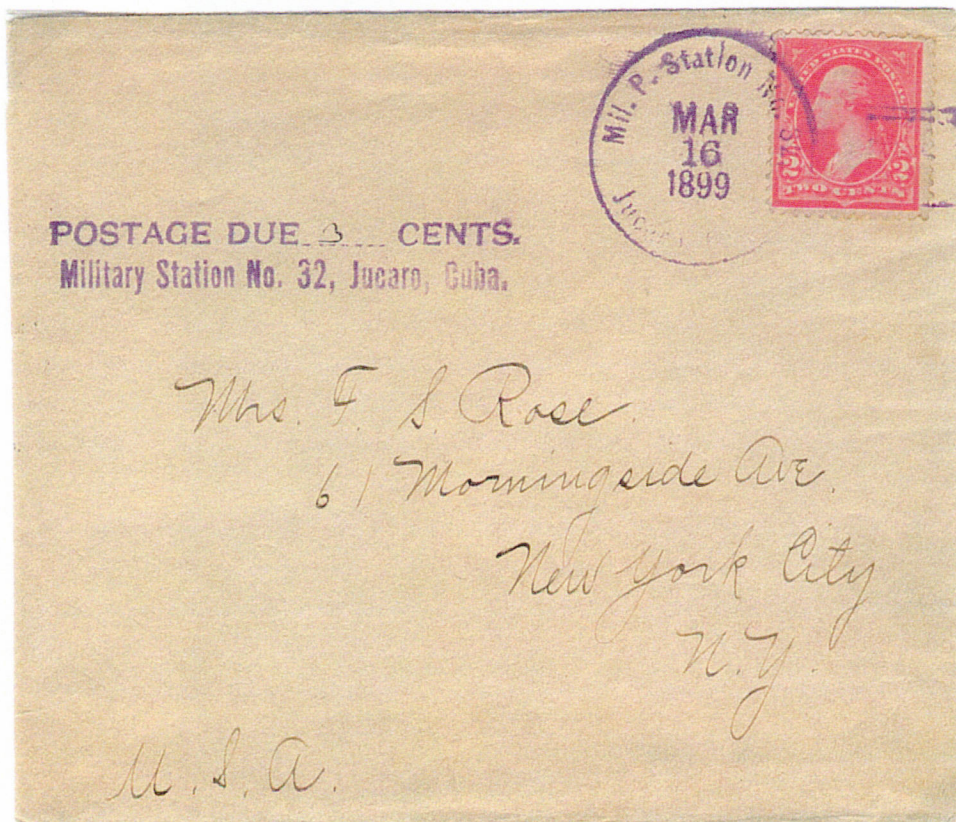 Mil. P. Station No.
MAR
16
1899
Jucaro
UNITED STATES POSTAGE
2 2
TWO CENTS
POSTAGE DUE 3 CENTS.
Military Station No. 32, Jucaro, Cuba.
Mrs. F. S. Rose.
61 Morningside Ave.
New York City
N.Y.
U. S. A.